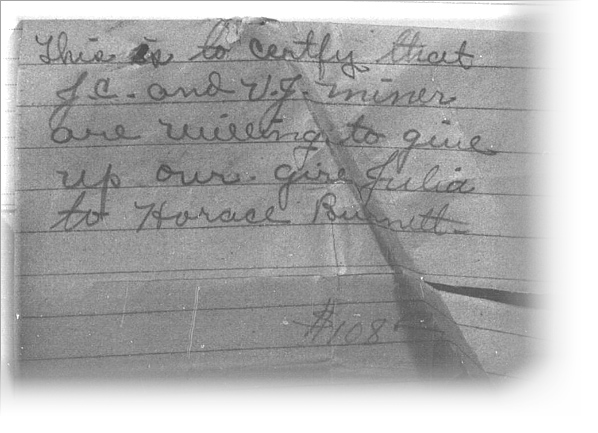 This is to certfy that
J.C. and V.J. miner
are willing to give
up our girl Julia
to Horace Burnett
$108